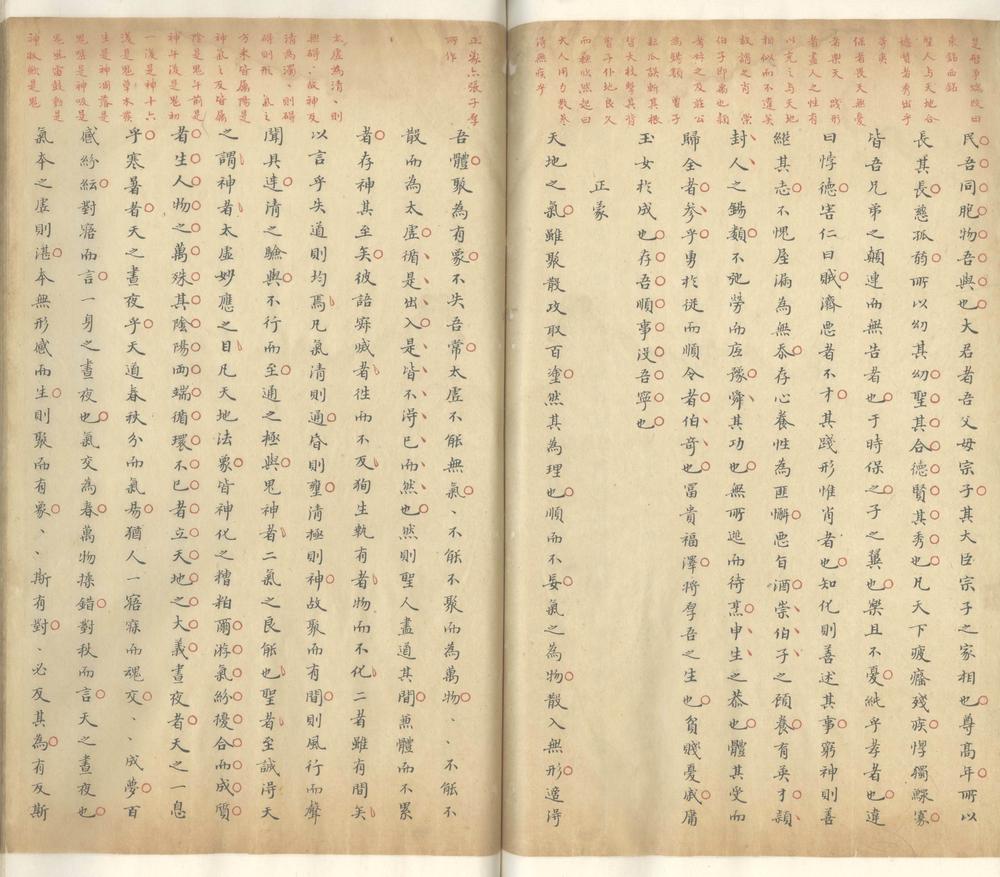 是起爭端改曰
東銘西銘
聖人與天地合
德賢者秀出乎
等夷
保者畏天無憂
者樂天 踐形
者盡人之性有
以充之與天地
相似而不違英
故謂之肖 崇
伯子即禹也穎
考叔之及莊公
為錫類 曾子
耘瓜誤斬其根
皙大杖擊其背
曾子仆地良久
而穌欣然起曰
大人用力教參
得無疾乎
民吾同胞物吾與也大君者吾父母宗子其大臣宗子之家相也尊高年所以
長其長慈孤弱所以幼其幼聖其合德賢其秀也凡天下疲癃殘疾惸獨鰥寡
皆吾兄弟之顛連而無告者也于時保之子之翼也樂且不憂純乎孝者也違
曰悖德害仁曰賊濟惡者不才其踐形惟肖者也知化則善述其事窮神則善
継其志不愧屋漏為無忝存心養性為匪懈惡旨酒崇伯子之顧養育英才穎
封人之錫類不弛勞而底豫舜其功也無所逃而待烹申生之恭也體其受而
歸全者參乎勇於從而順令者伯奇也富貴福澤將厚吾之生也貧賤憂戚庸
玉女於成也存吾順事沒吾寧也
正蒙
天地之氣雖聚散攻取百塗然其為理也順而不妄氣之為物散入無形適得
正蒙亦張子厚
所作
太虛為清、則
無礙、故神反
清為濁、則礙
礙則形 氣之
方來皆屬陽是
神氣之反皆屬
陰是鬼午前是
神午後是鬼初
一後是神十六
後是鬼草木發
生是神凋落是
鬼噓是神吸是
鬼風雷鼓動是
神收斂是鬼
吾體聚為有象不失吾常太虛不能無氣、不能不聚而為萬物、、不能不
散而為太虛循是出入是皆不得已而然也然則聖人盡道其間兼體而不累
者存神其至矣彼語寂滅者往而不反徇生執有者物而不化二者雖有間矣
以言乎失道則均焉凡氣清則通昏則壅清極則神故聚而有間則風行而聲
聞具達清之驗與不行而至通之極與鬼神者二氣之良能也聖者至誠得天
之謂神者太虛妙應之目凡天地法象皆神化之糟粕爾游氣紛擾合而成質
者生人物之萬殊其陰陽兩端循環不已者立天地之大義晝夜者天之一息
乎寒暑者天之晝夜乎天道春秋分而氣易猶人一寤寐而魂交、、成夢百
感紛紜對寤而言一身之晝夜也氣交為春萬物揉錯對秋而言天之晝夜也
氣本之虛則湛本無形感而生則聚而有象、、斯有對、必反其為有反斯